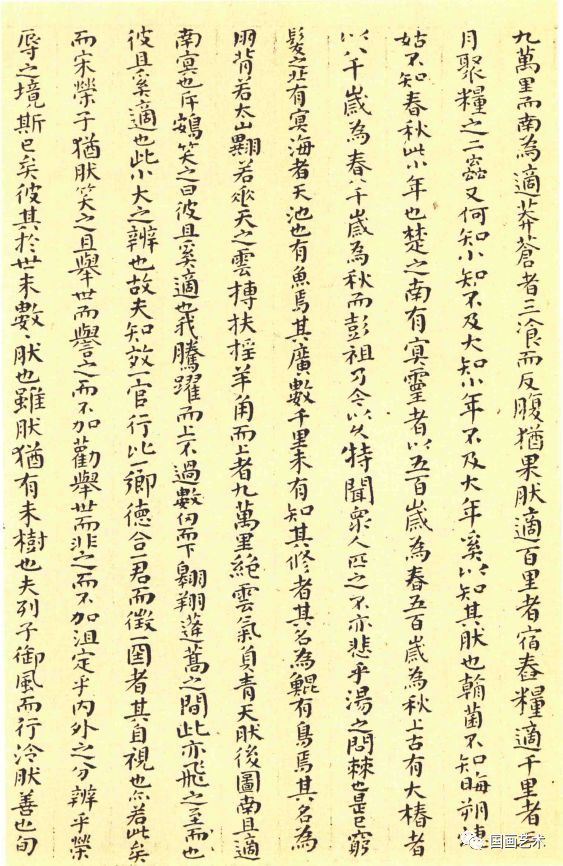 九萬里而南為適莽蒼者三飡而反腹猶果肰適百里者宿舂糧適千里者三
月聚糧之二蟲又何知小知不及大知小年不及大年奚以知其肰也朝菌不知晦朔蟪
姑不知春秋此小年也楚之南有冥靈者以五百歲為春五百歲為秋上古有大椿者
以八千歲為春八千歲為秋而彭祖乃今以久特聞眾人匹之不亦悲乎湯之問棘也是已窮
髮之北有冥海者天池也有魚焉其廣數千里未有知其修者其名為鯤有鳥焉其名為
朋背若太山翼若垂天之雲摶扶搖羊角而上者九萬里絕雲氣負青天肰後圖南且適
南冥也斥鴳笑之曰彼且奚適也我騰躍而上不過數仞而下翱翔蓬蒿之間此亦飛之至而也
彼且奚適也此小大之辨也故夫知效一官行比一鄉德合一君而徵一國者其自視也亦若此矣
而宋榮子猶肰笑之且舉世而譽之而不加勸舉世而非之而不加沮定乎內外之分辨乎榮
辱之境斯已矣彼其於世未數、肰也雖肰猶有未樹也夫列子御風而行泠肰善也旬
国画艺术